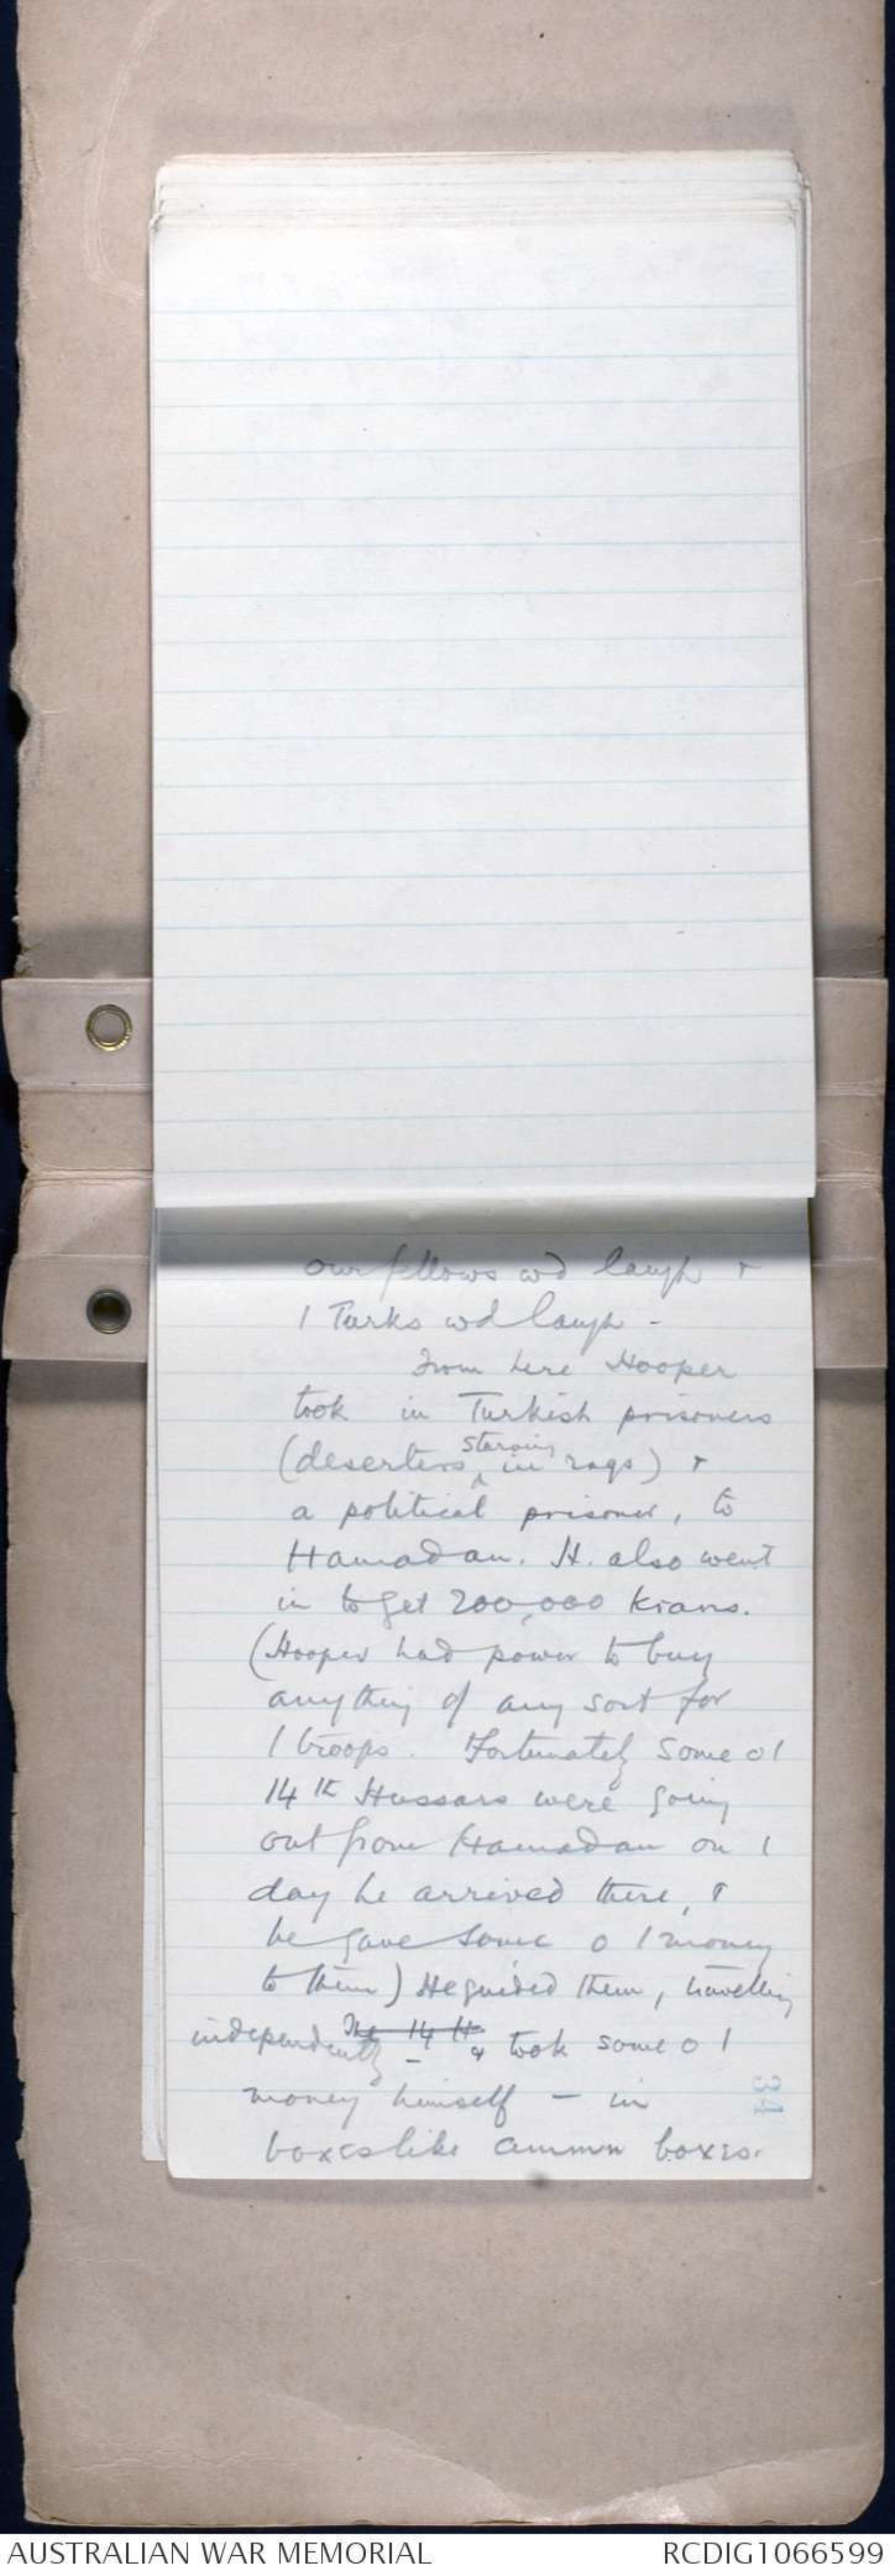 our fellows wd laugh &
/ Turks wd laugh -
From here Hooper
took in Turkish prisoners
(deserters starving in rags) &
a political prisoner, to
Hamadan. H. also went
in to get 200,000 krans.
(Hooper had power to buy
anything of any sort for
/ troops. Fortunately some o /
14th Hussars were going
out from Hamadan on /
day he arrived there, &
he gave some o / money
to them) He guided them, travelling
independently The 14 H. - & took some o /
money himself - in
boxes like ammn boxes.
34
AUSTRALIAN WAR MEMORIAL
RCDIG1066599